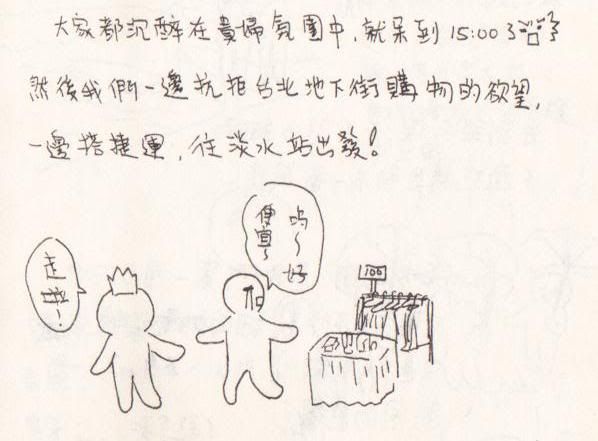 大家都沉醉在貴婦氛圍中，就呆到15:00了
然後我們一邊抗拒台北地下街購物的欲望，
一邊搭捷運，往淡水站出發！
走啦！
嗚～好
便宜～
100